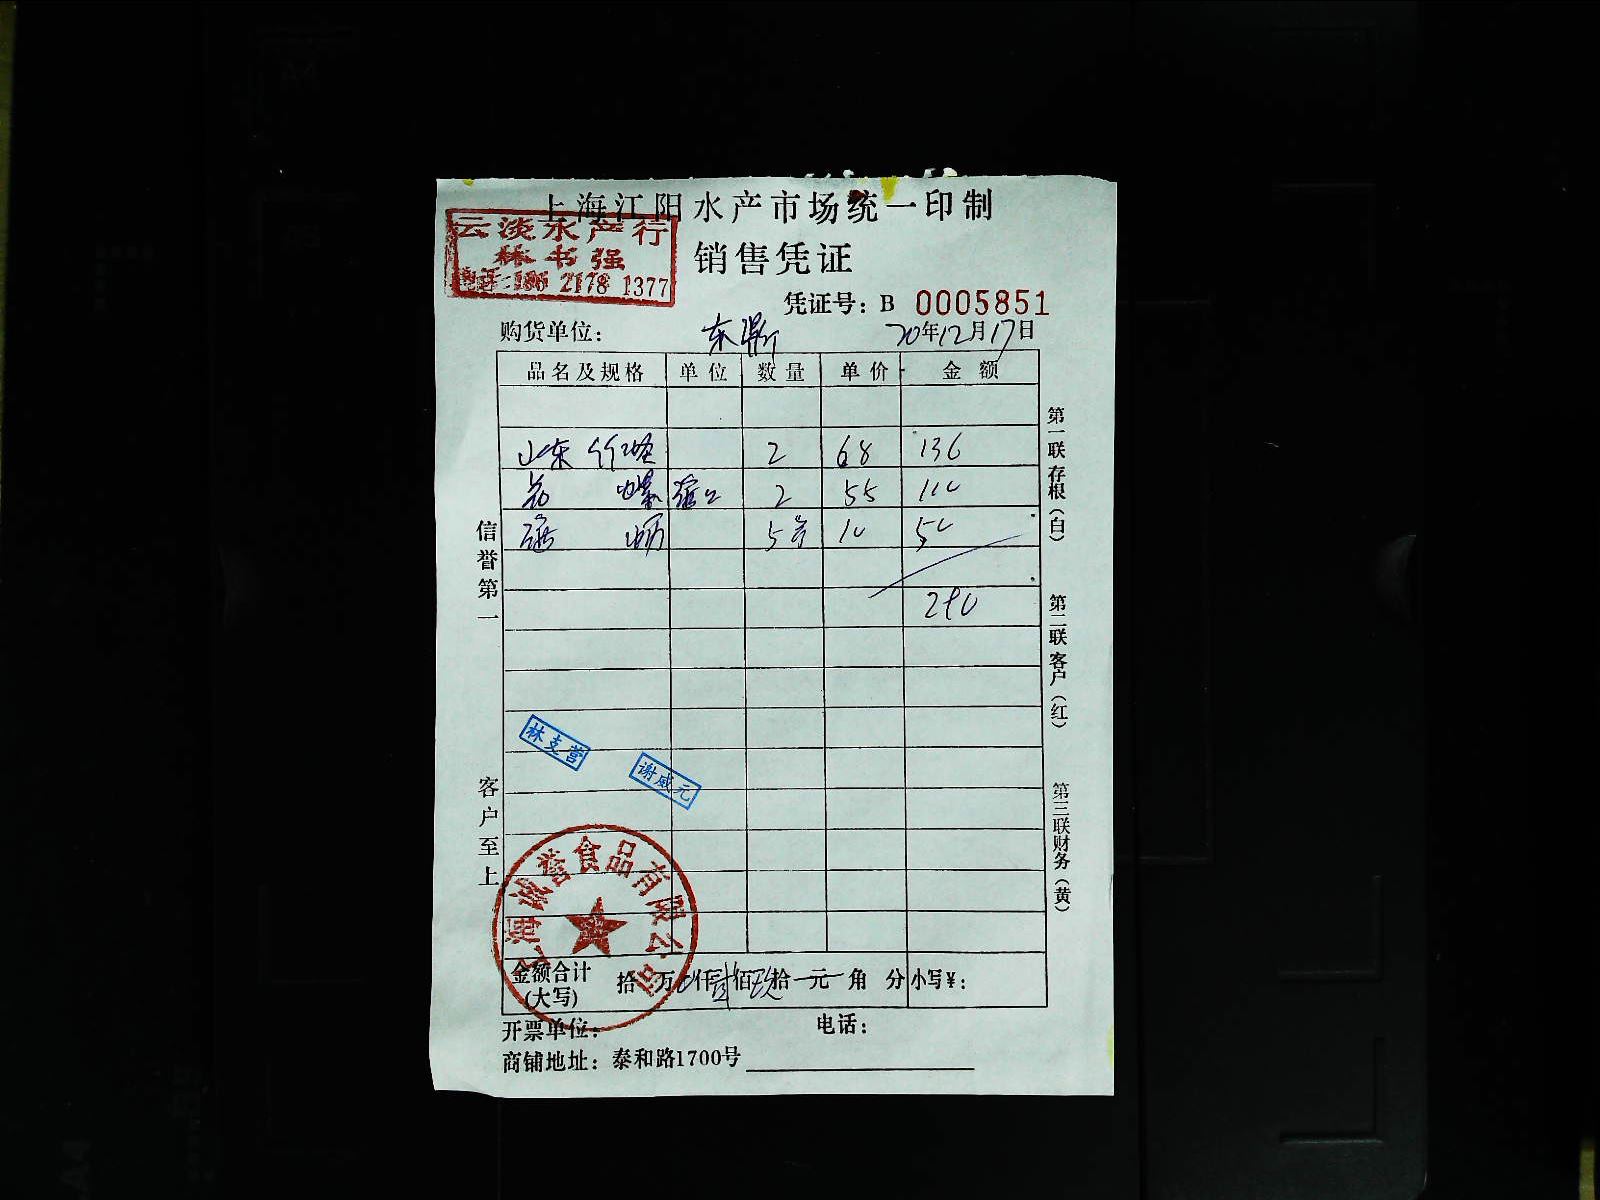 上海江阳水产市场统一印制
云淡水产行
林书强
电话:186 2178 1377
销售凭证
凭证号：B 0005851
购货单位： 20年12月17日
品名及规格 单位 数量 单价 金额
山东竹蛏 2 68 136
花螺 2 55 110
5 10 50
290
信誉第一
客户至上
第一联存根（白）
第二联客户（红）
第三联财务（黄）
林支营
谢威元
上海诚誉食品有限公司
金额合计
(大写)
拾 万 仟 佰 拾 元 角 分 小写¥：
开票单位： 电话：
商铺地址：泰和路1700号